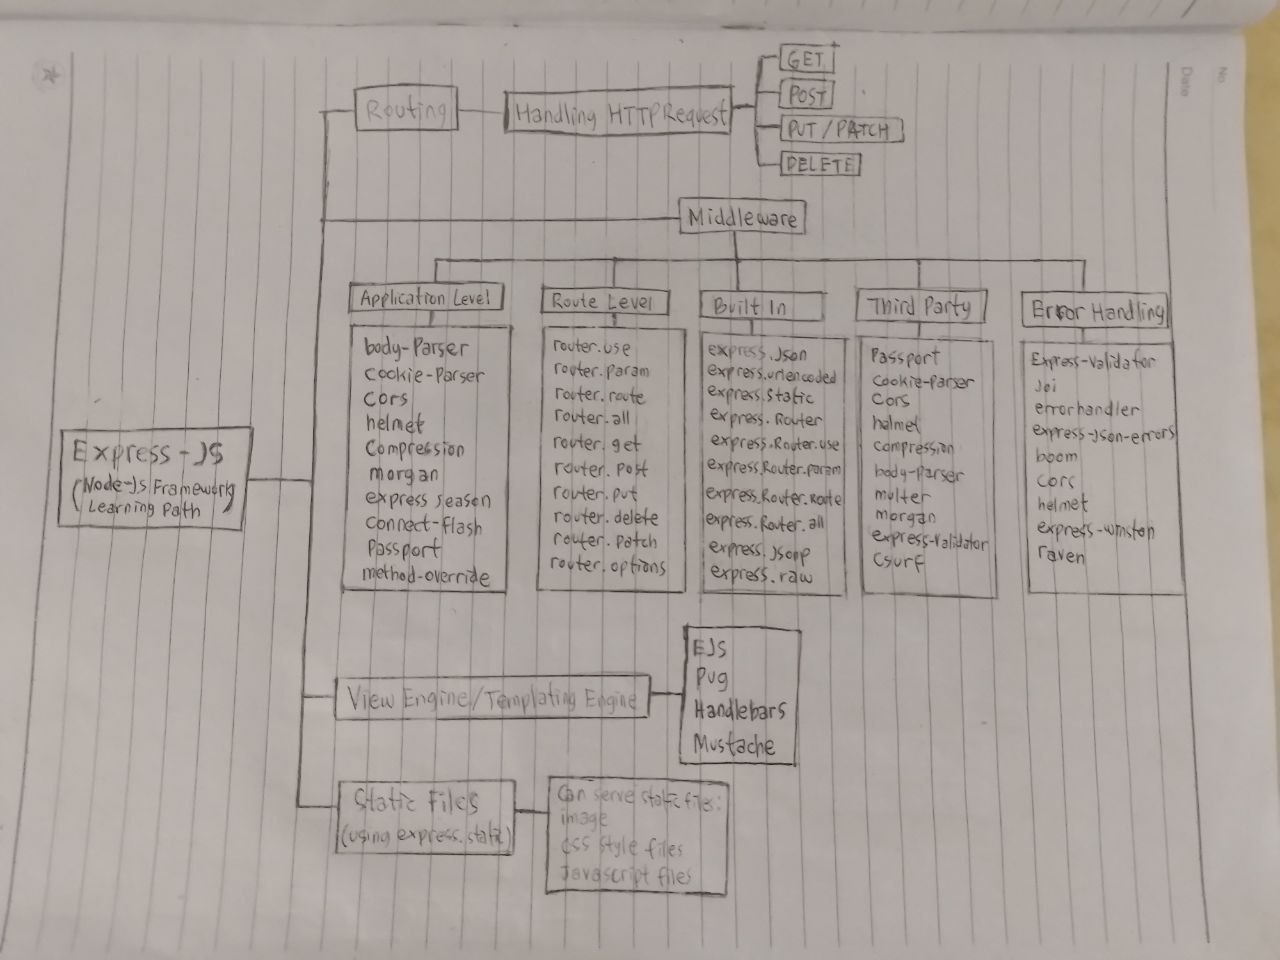 No.
Date
Routing
Handling HTTP Request
GET
POST
PUT / PATCH
DELETE
Middleware
Application Level
body-Parser
cookie-Parser
cors
helmet
Compression
morgan
express season
connect-flash
Passport
method-override
Route Level
router.use
router.param
router.route
router.all
router.get
router.post
router.put
router.delete
router.patch
router.options
Built In
express.Json
express.urlencoded
express.Static
express.Router
express.Router.use
express.Router.param
express.Router.Route
express.Router.all
express.jsonp
express.raw
Third Party
Passport
cookie-Parser
Cors
helmet
compression
body-Parser
multer
morgan
express-Validator
Csurf
Error Handling
Express-Validator
Joi
errorhandler
express-Json-errors
boom
cors
helmet
express-winston
raven
Express-JS
(Node-Js Framework
Learning Path)
View Engine/Templating Engine
EJS
Pug
Handlebars
Mustache
Static Files
(using express.static)
Can serve static files:
image
CSS style files
Javascript files